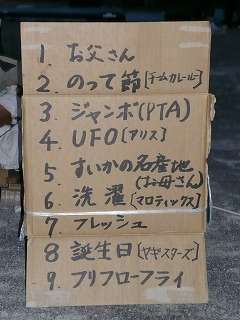 1. お父さん
2. のって節[チームカレールー]
3. ジャンボ(PTA)
4. UFO[アリス]
5. すいかの名産地
(お母さん)
6. 洗濯[マロティックス]
7 フレッシュ
8 誕生日[ヤギスターズ]
9. フリフローフライ